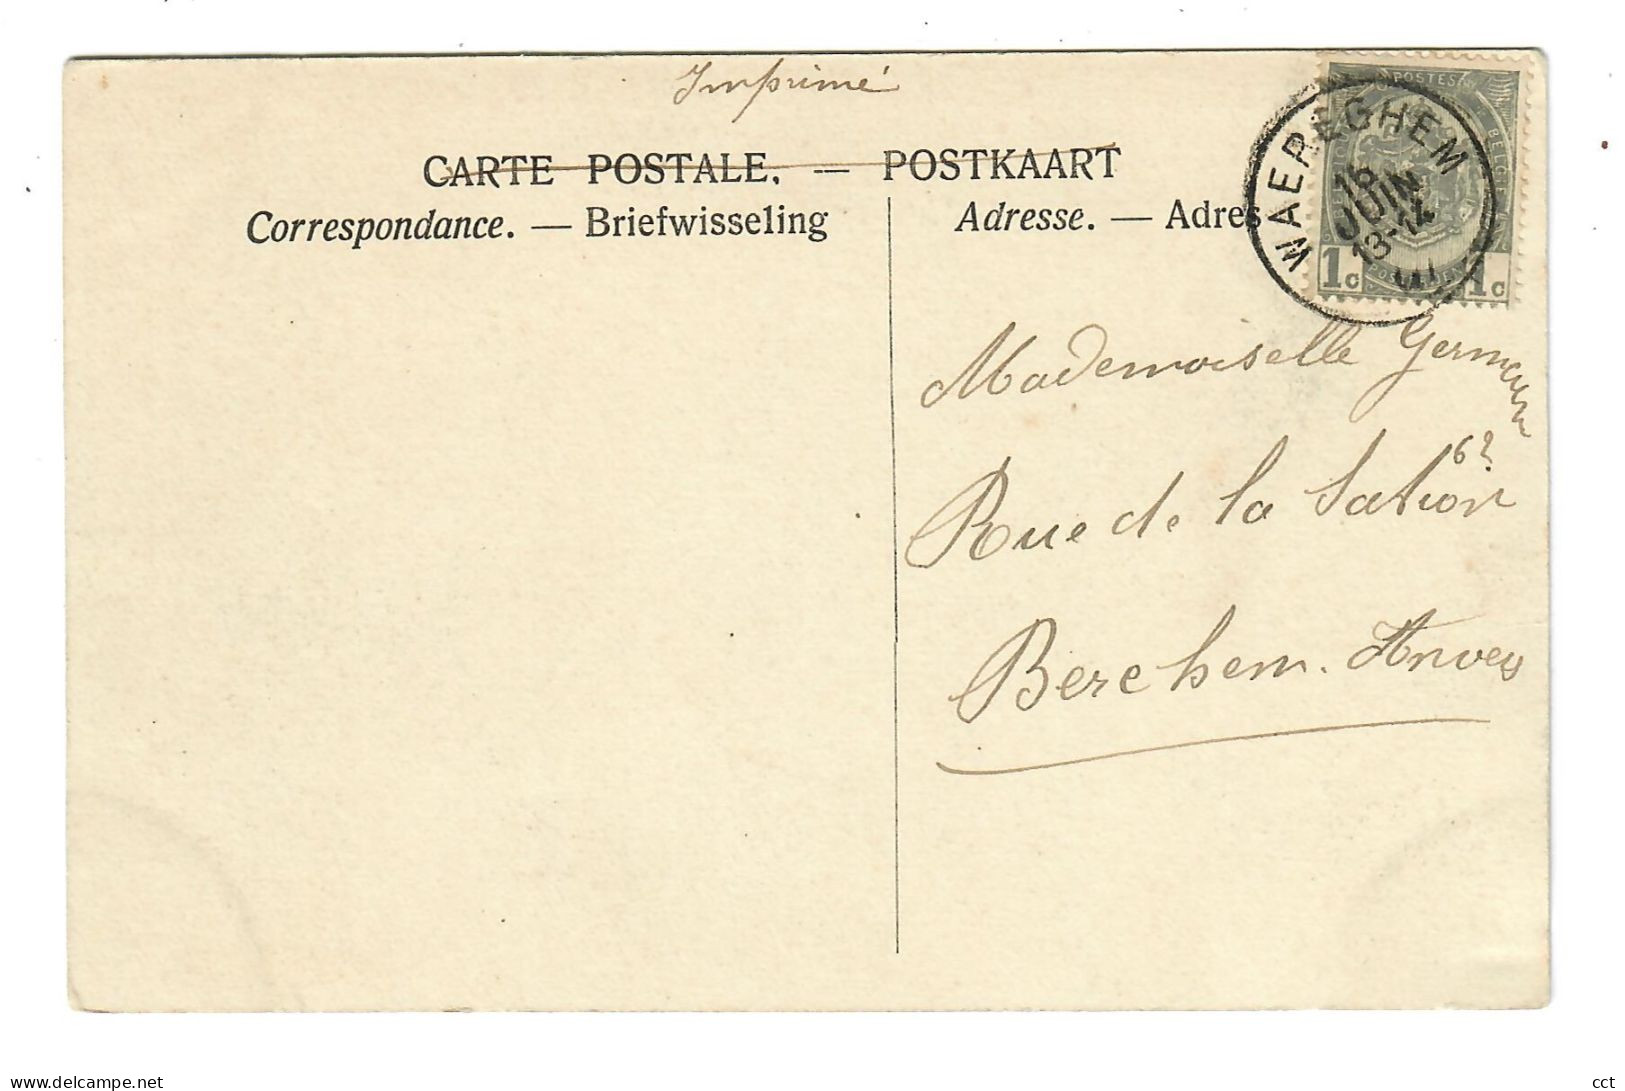 Imprimé
CARTE POSTALE. — POSTKAART
Correspondance. — Briefwisseling
Adresse. — Adres
POSTES
BELGIQUE
1c 1c
WAEREGHEM
15
JUIN
13-14
Mademoiselle
62
Rue de la Sation
Berchem. Anvers
delcampe.net
cct